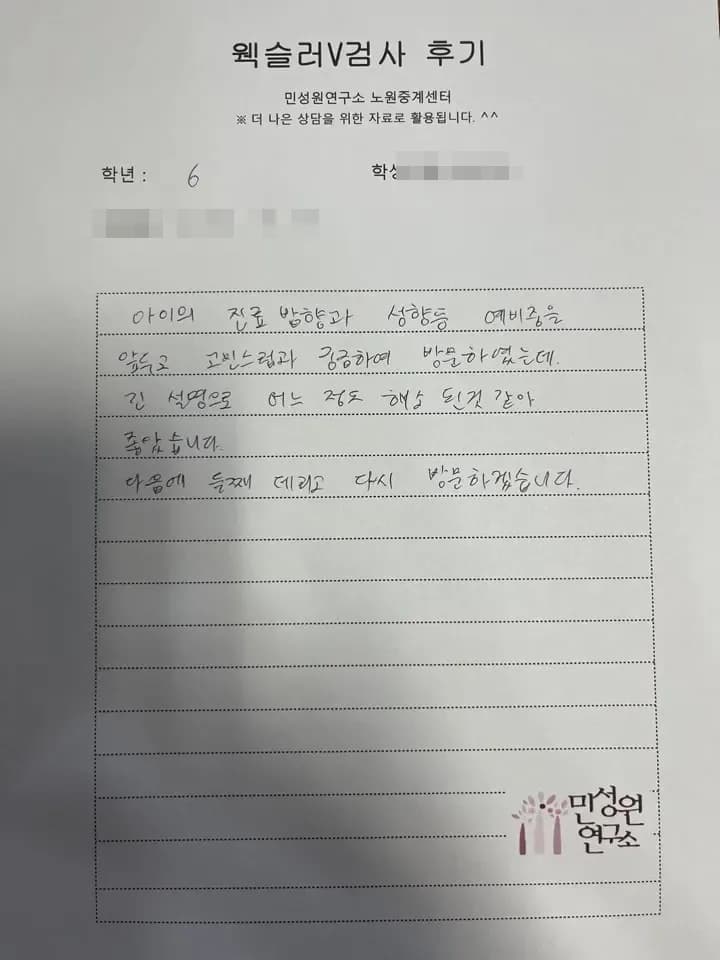 웩슬러V검사 후기
민성원연구소 노원중계센터
※ 더 나은 상담을 위한 자료로 활용됩니다. ^^
학년 : 6
아이의 진로 방향과 성향등 예비중을
앞두고 고민스럽과 궁금하여 방문하였는데.
긴 설명으로 어느 정도 해소 된것 같아
좋았습니다.
다음에 둘째 데리고 다시 방문하겠습니다.
민성원
연구소